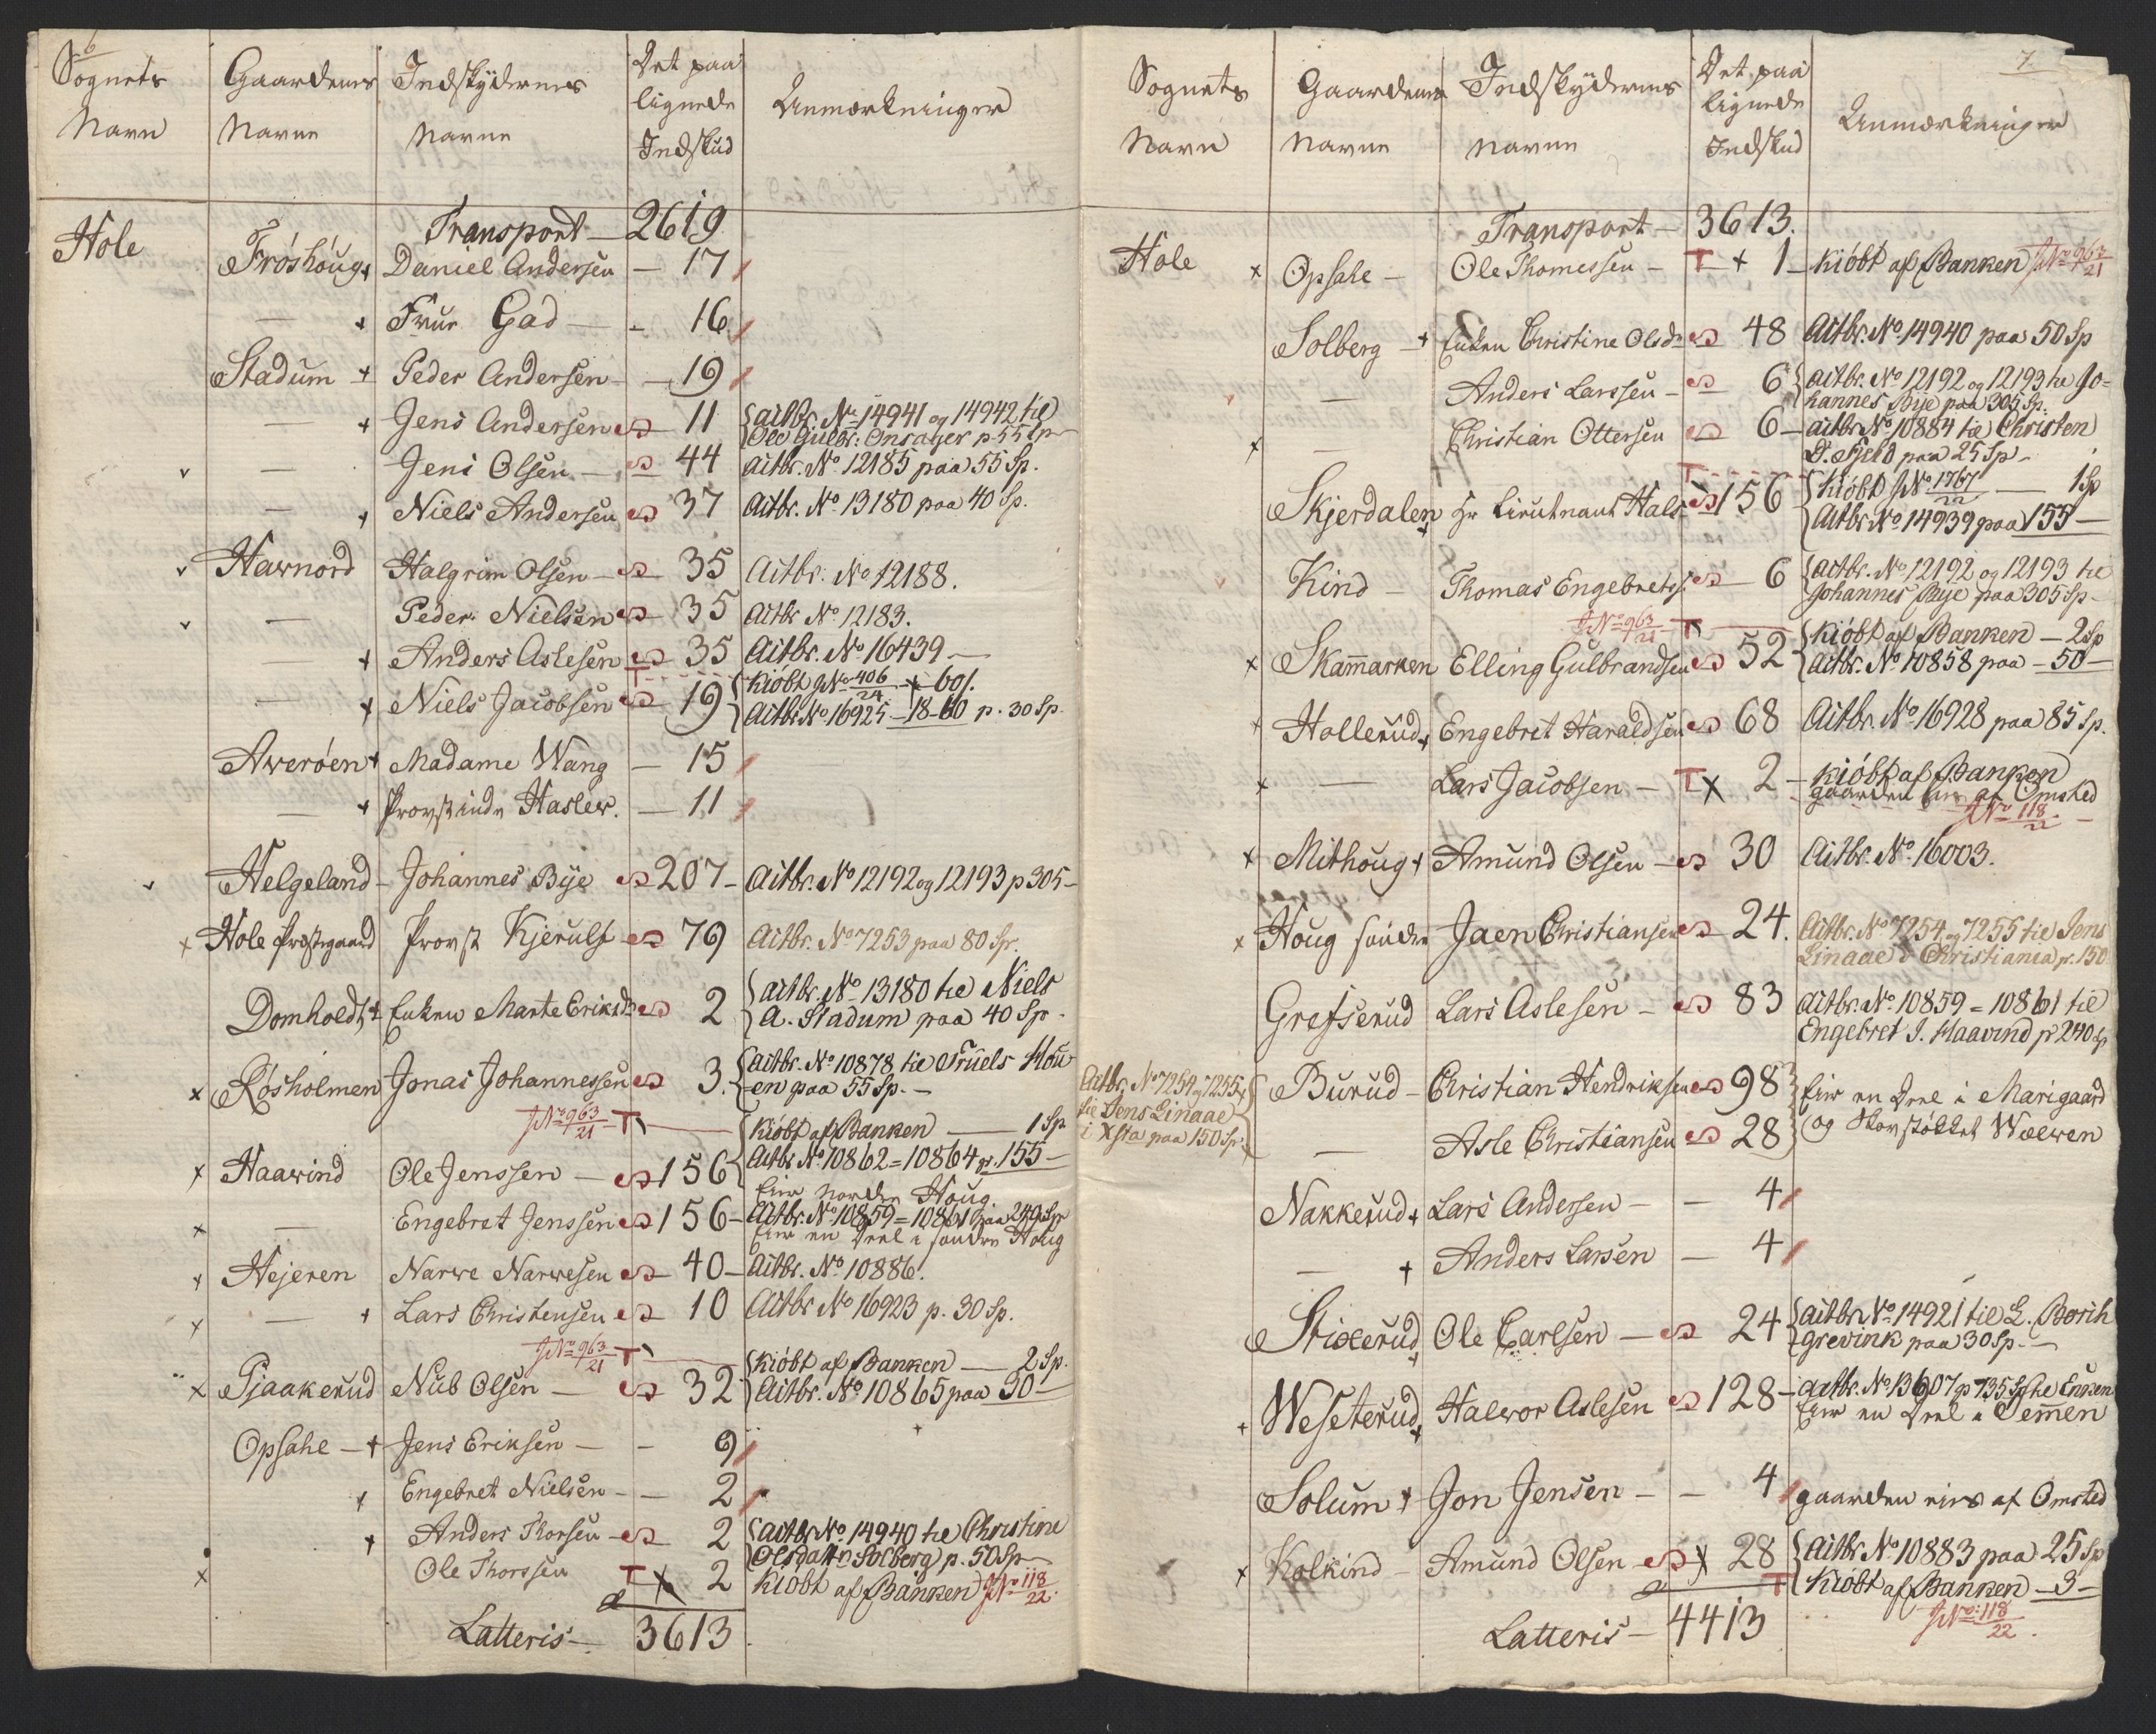 6
Sognets Navn | Gaardenes Navne | Indskydernes Navne | Det paalignede Indskud | Anmærkninger
Transport — 2619
Hole | Fröshöug + | Daniel Andersen — 17
— + | Frue Gad — - 16
Stadum + | Peder Andersen — 19
— + | Jens Andersen 11 | { Actbr. No 14941 og 14942 til
Ole Gulbr: Onsager p 55 Sp
v — | Jens Olsen — 44 | Actbr. No 12185 paa 55 Sp.
— + | Niels Andersen 37 | Actbr. No 13180 paa 40 Sp.
v Hawnord | Halgrim Olsen — 35 | Actbr. No 12188.
v — | Peder Nielsen 35 | Actbr No 12183.
— + | Anders Aslesen 35 | Actbr. No 16439 —
— + | Niels Jacobsen T 19 | { Kiöbt J No 406/24 — 60 s.
Actbr No 16925 — 18-60 p. 30 Sp.
Averöen + | Madame Wang — 15
— + | Provstinde Haslew. — 11
v Helgeland — | Johannes Bye 207 — | Actbr. No 12192 og 12193 p 305 —
x Hole Præstegaard | Provst Kjerulf 79 | Actbr. No 7253 paa 80 Sp.
Domholdt + | Enken Marte Eriksdr 2 | { Actbr. No 13180 til Niels
A. Stadum paa 40 Sp.
x Rösholmen | Jonas Johannessen 3. | { Actbr. No 10878 til Truels Hou
en paa 55 Sp. —
J No 963/21 T — { Kiöbt af Banken — 1 Sp
x Haawind | Ole Jenssen — 156 | Actbr No 10862 = 10864 p. 155 —
Eier nordre Houg
x — | Engebret Jenssen 156 — | Actbr. No 10859 = 10861 paa 240 Sp
Eier en Deel i söndre Houg
x Hejeren | Narwe Narwesen 40 — | Actbr. No 10886.
x — + | Lars Christensen 10 | Actbr No 16923 p. 30 Sp.
J No 963/21 T — { Kiöbt af Banken — 2 Sp.
x Pjaakerud | Nub Olsen — 32 | Actbr. No 10865 paa 30 —
Opsahl — + | Jens Eriksen — - 9
+ | Engebret Nielsen — - 2
+ | Anders Thorsen — 2 | { Actbr No 14940 til Christine
Olsdattr Solberg p. 50 Sp —
x | Ole Thorssen T x 2 | Kiöbt af Banken J No 118/22.
Latteris — 3613
7.
Sognets Navn | Gaardenes Navne | Indskydernes Navne | Det paalignede Indskud | Anmærkninger
Transport — 3613.
Hole x | Opsahl — | Ole Thomessen — T + 1 — | Kiöbt af Banken J No 963/21
Solberg — + | Enken Christine Olsdr 48 | Actbr. No 14940 paa 50 Sp
— | Anders Larssen — 6 | { Actbr. No 12192 og 12193 til Jo=
hannes Bye paa 305 Sp.
x — | Christian Ottersen 6 — | Actbr No 10884 til Christen
D. Fjeld paa 25 Sp —
Skjerdalen + | Hr Lieutnant Hals T 156 | { Kiöbt J No 1767/22 — 1 Sp
Actbr No 14939 paa 155 —
Kind — | Thomas Engebrets: 6 | { Actbr. No 12192 og 12193 til
Johannes Bye paa 305 Sp —
J No 963/21 T — { Kiöbt af Banken — 2 Sp
x Skam̄arken | Elling Gulbrandsen 52 | Actbr. No 10858 paa — 50 —
+ Hollerud + | Engebret Haraldsen 68 | Actbr. No 16928 paa 85 Sp.
x — | Lars Jacobsen — T x 2 — | Kiöbt af Banken
gaarden eies af Omsted
J No 118/22 —
x Mithoug + | Amund Olsen — 30 | Actbr. No 16003.
x Houg söndre | Jaen Christiansen 24. | Actbr. No 7254 og 7255 til Jens
Linaae i Christiania p. 150
Grefserud | Lars Aslesen — 83 | Actbr. No 10859 = 10861 til
Engebret J. Haavind p 240 Sp
Actbr. No 7254 og 7255
til Jens Linaae
i Xsta paa 150 Sp. | Burud — | Christian Hendriksen 98 | Eier en Deel i Marigaard
— | Asle Christiansen 28 | og Skovstökket Wælwen
Nakkerud + | Lars Andersen — — 4
— + | Anders Larsen — 4
Stixerud + | Ole Carlsen — 24 | { Actbr No 14921 til L. Borch
grevink paa 30 Sp. —
+ Weseterud + | Halvor Aslesen 128 — | Actbr. No 13607 p 135 Sp til Enken
Eier en Deel i Sem̄en
Solum + | Jon Jensen — — 4 | gaarden eies af Omsted
x Kolkind — | Amund Olsen — x 28 | { Actbr. No 10883 paa 25 Sp
T Kiöbt af Banken — 3 —
J No 118/22.
Latteris — 4413